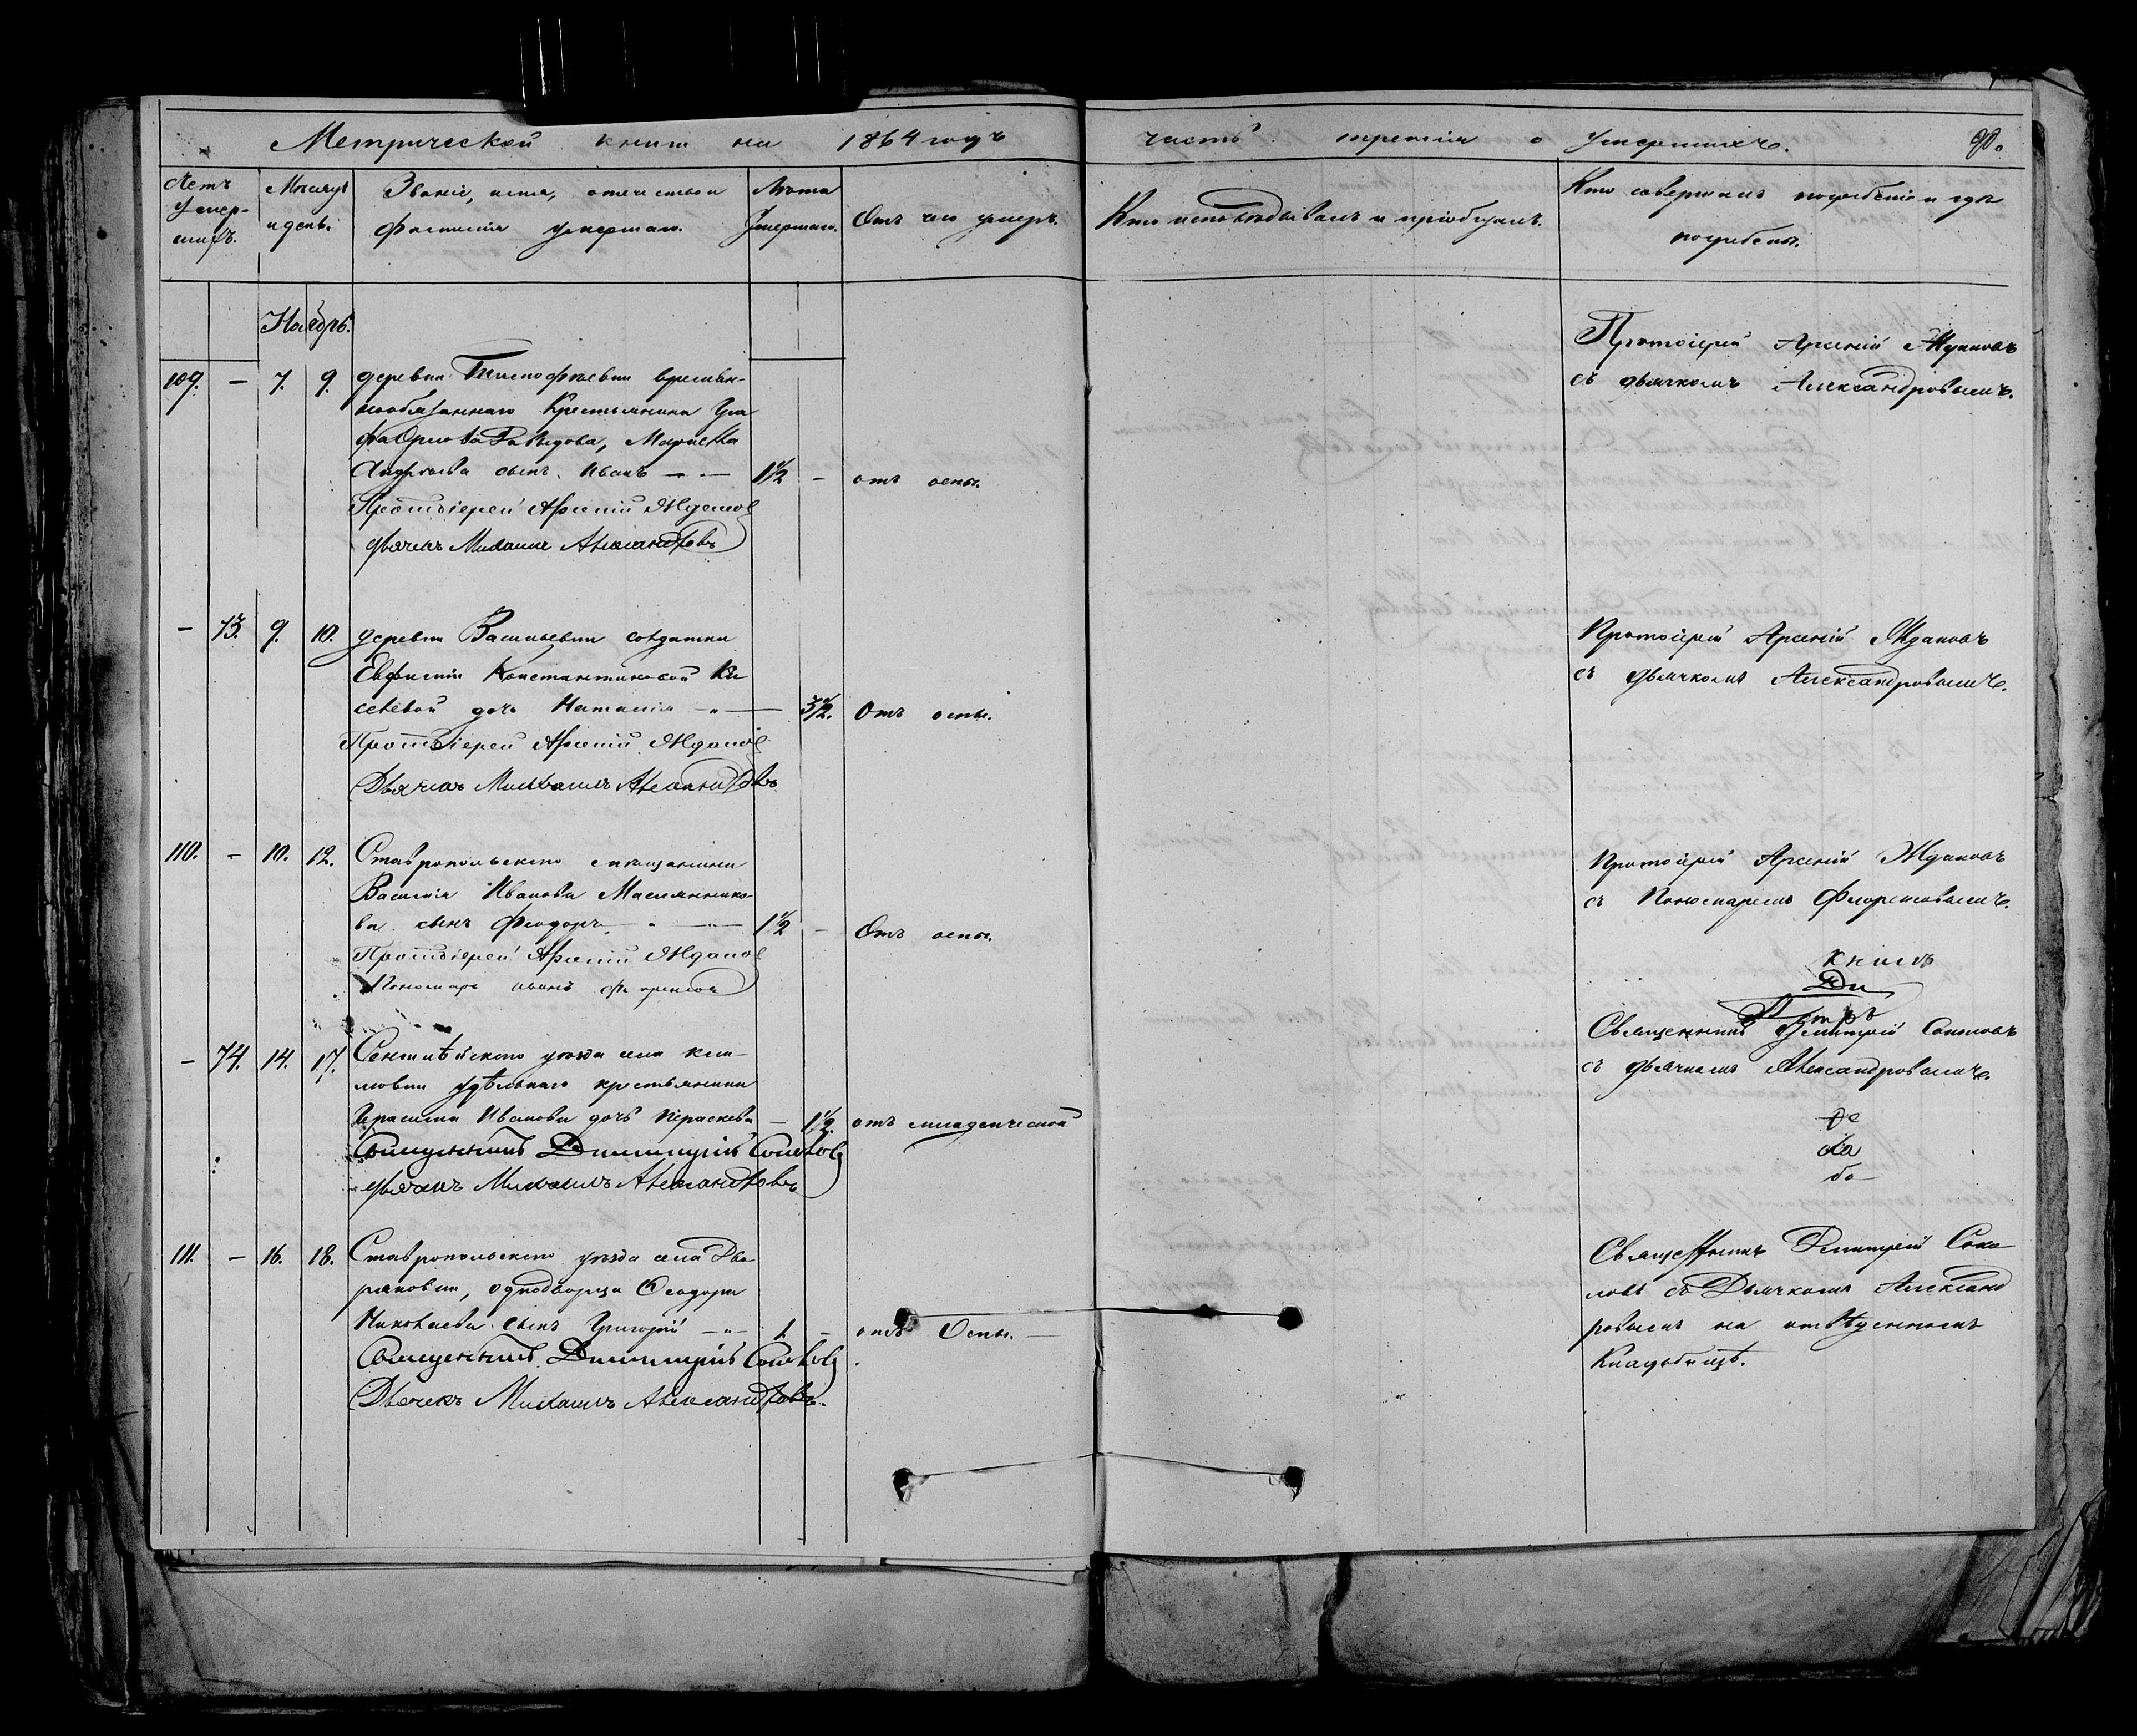 Метрической книги на 1864 годъ
часть третія о умершихъ. 90.
Летъ умер-
шихъ.
Месяцъ
и день.
Званіе, имя, отечество и
фамилія умершаго.
Лета
Умершаго.
Отъ чего умеръ.
Кто исповѣдывалъ и пріобщалъ.
Кто совершалъ погребеніе и гдѣ
погребены.
Ноябрь.
109. — 7. 9. деревни Тимофѣевки времен-
нообязаннаго Крестьянина Гра
фа Орлова Давыдова, Матвѣя
Андреева сынъ Иванъ — 1½ — отъ оспы.
Протоіерей Арсеній Ждановъ
дьячекъ Михаилъ Александровъ
Протоіерей Арсеній Ждановъ
съ дьячкомъ Александровымъ.
— 73. 9. 10. деревни Васильевки солдатки
Евфиміи Константиновой Ки
селевой дочь Наталія — 3½. Отъ оспы.
Протоіерей Арсеній Ждановъ
Дьячекъ Михаилъ Александровъ
Протоіерей Арсеній Ждановъ
съ дьячкомъ Александровымъ.
110. — 10. 12. Ставропольскаго мѣщанина
Василія Иванова Маслянинико-
ва сынъ Феодоръ — 1½ — Отъ оспы.
Протоіерей Арсеній Ждановъ
Пономарь Иванъ
Протоіерей Арсеній Ждановъ
съ Пономаремъ Флоретовымъ.
Ди
— 74. 14. 17. Сенгилѣйскаго уѣзда села Кли-
мовки удѣльнаго крестьянина
Герасима Иванова дочь Параскева — 1½. отъ младенческой
Священникъ Димитрій Соколовъ
дьячекъ Михаилъ Александровъ
Священникъ Димитрій Соколовъ
съ дьячкомъ Александровымъ.
ка
ба
111. — 16. 18. Ставропольскаго уѣзда села Дво-
ряновки, однодворца Феодора
Николаева сынъ Григорій — 1 — отъ Оспы.
Священникъ Димитрій Соколовъ
Дьячекъ Михаилъ Александровъ.
Священникъ Димитрій Соко-
ловъ съ Дьячкомъ Александ
ровымъ на отведенномъ
Кладбищѣ.